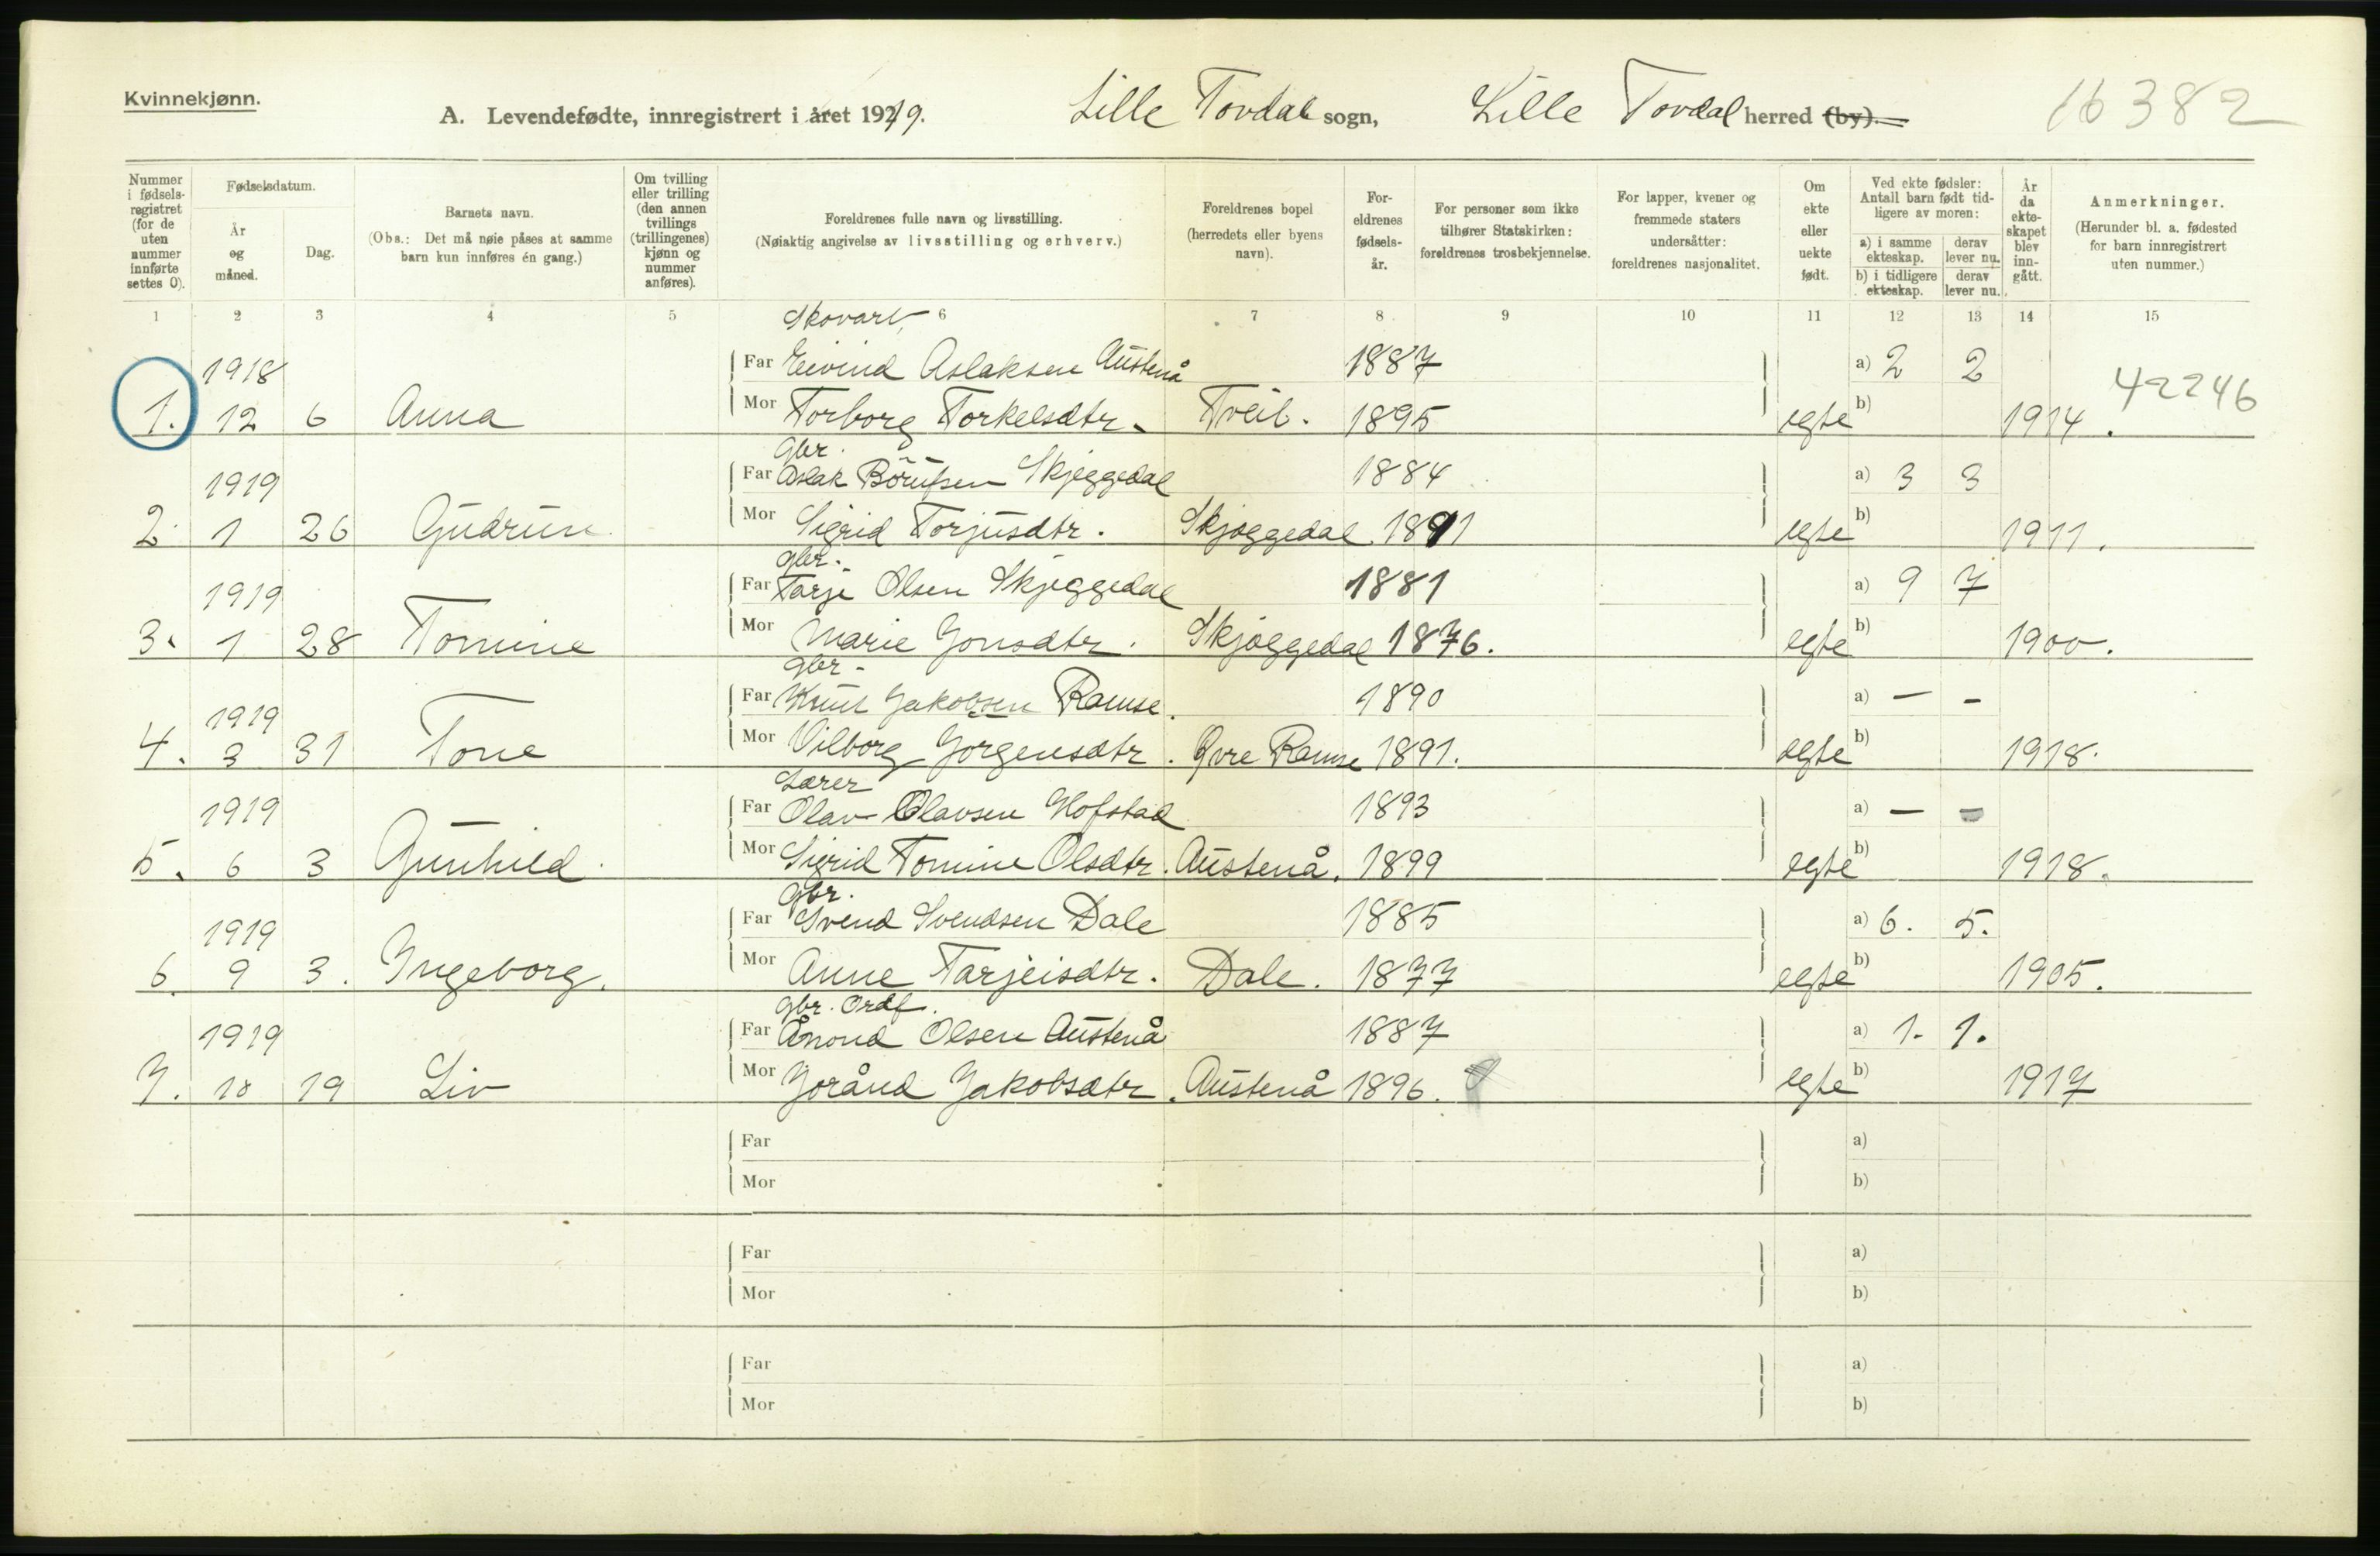 Kvinnekjønn.
A. Levendefødte, innregistrert i året 1919. Lille Tovdal sogn, Lille Tovdal herred (by). 16382
Nummer i fødsels-registret (for de uten nummer innførte settes 0).
Fødselsdatum.
År og måned.
Dag.
Barnets navn.
(Obs.: Det må nøie påses at samme barn kun innføres én gang.)
Om tvilling eller trilling (den annen tvillings (trillingenes) kjønn og nummer anføres).
Foreldrenes fulle navn og livsstilling.
(Nøiaktig angivelse av livsstilling og erhverv.)
Foreldrenes bopel (herredets eller byens navn).
For-eldrenes fødsels-år.
For personer som ikke tilhører Statskirken: foreldrenes trosbekjennelse.
For lapper, kvener og fremmede staters undersåtter: foreldrenes nasjonalitet.
Om ekte eller uekte født.
Ved ekte fødsler: Antall barn født tid-ligere av moren:
a) i samme ekteskap. derav lever nu.
b) i tidligere ekteskap. derav lever nu.
År da ekte-skapet blev inn-gått.
Anmerkninger.
(Herunder bl. a. fødested for barn innregistrert uten nummer.)
1 2 3 4 5 6 7 8 9 10 11 12 13 14 15
Skovarb.
1918 Far Eivind Aslaksen Austenå 1887 a) 2 2
1. 12 6 Anna Mor Torborg Torkelsdtr. Tveit. 1895 egte b) 1914. 42246
Gbr.
1919 Far Aslak Börufsen Skjeggedal 1884 a) 3 3
2. 1 26 Gudrun Mor Sigrid Torjusdtr. Skjeggedal. 1891 egte b) 1911.
Gbr.
1919 Far Tarje Olsen Skjeggedal 1881 a) 9 7
3. 1 28 Tomine Mor Marie Jonsdtr. Skjeggedal 1876. egte b) 1900.
Gbr.
1919 Far Knut Jakobsen Ramse. 1890 a) — -
4. 3 31 Tone Mor Vilborg Jørgensdtr. Øvre Ramse 1891. egte b) 1918.
Lærer
1919 Far Olav Olavsen Hofstad 1893 a) — -
5. 6 3 Gunhild. Mor Sigrid Tomine Olsdtr. Austenå. 1899 egte b) 1918.
Gbr.
1919 Far Svend Svendsen Dale 1885 a) 6. 5.
6. 9 3. Ingeborg. Mor Anne Tarjeisdtr. Dale. 1877 egte b) 1905.
Gbr. Ordf.
1919 Far Ånond Olsen Austenå 1887 a) 1. 1.
7. 10 19 Liv Mor Jorånd Jakobsdtr. Austenå 1896. egte b) 1917
Far a)
Mor b)
Far a)
Mor b)
Far a)
Mor b)